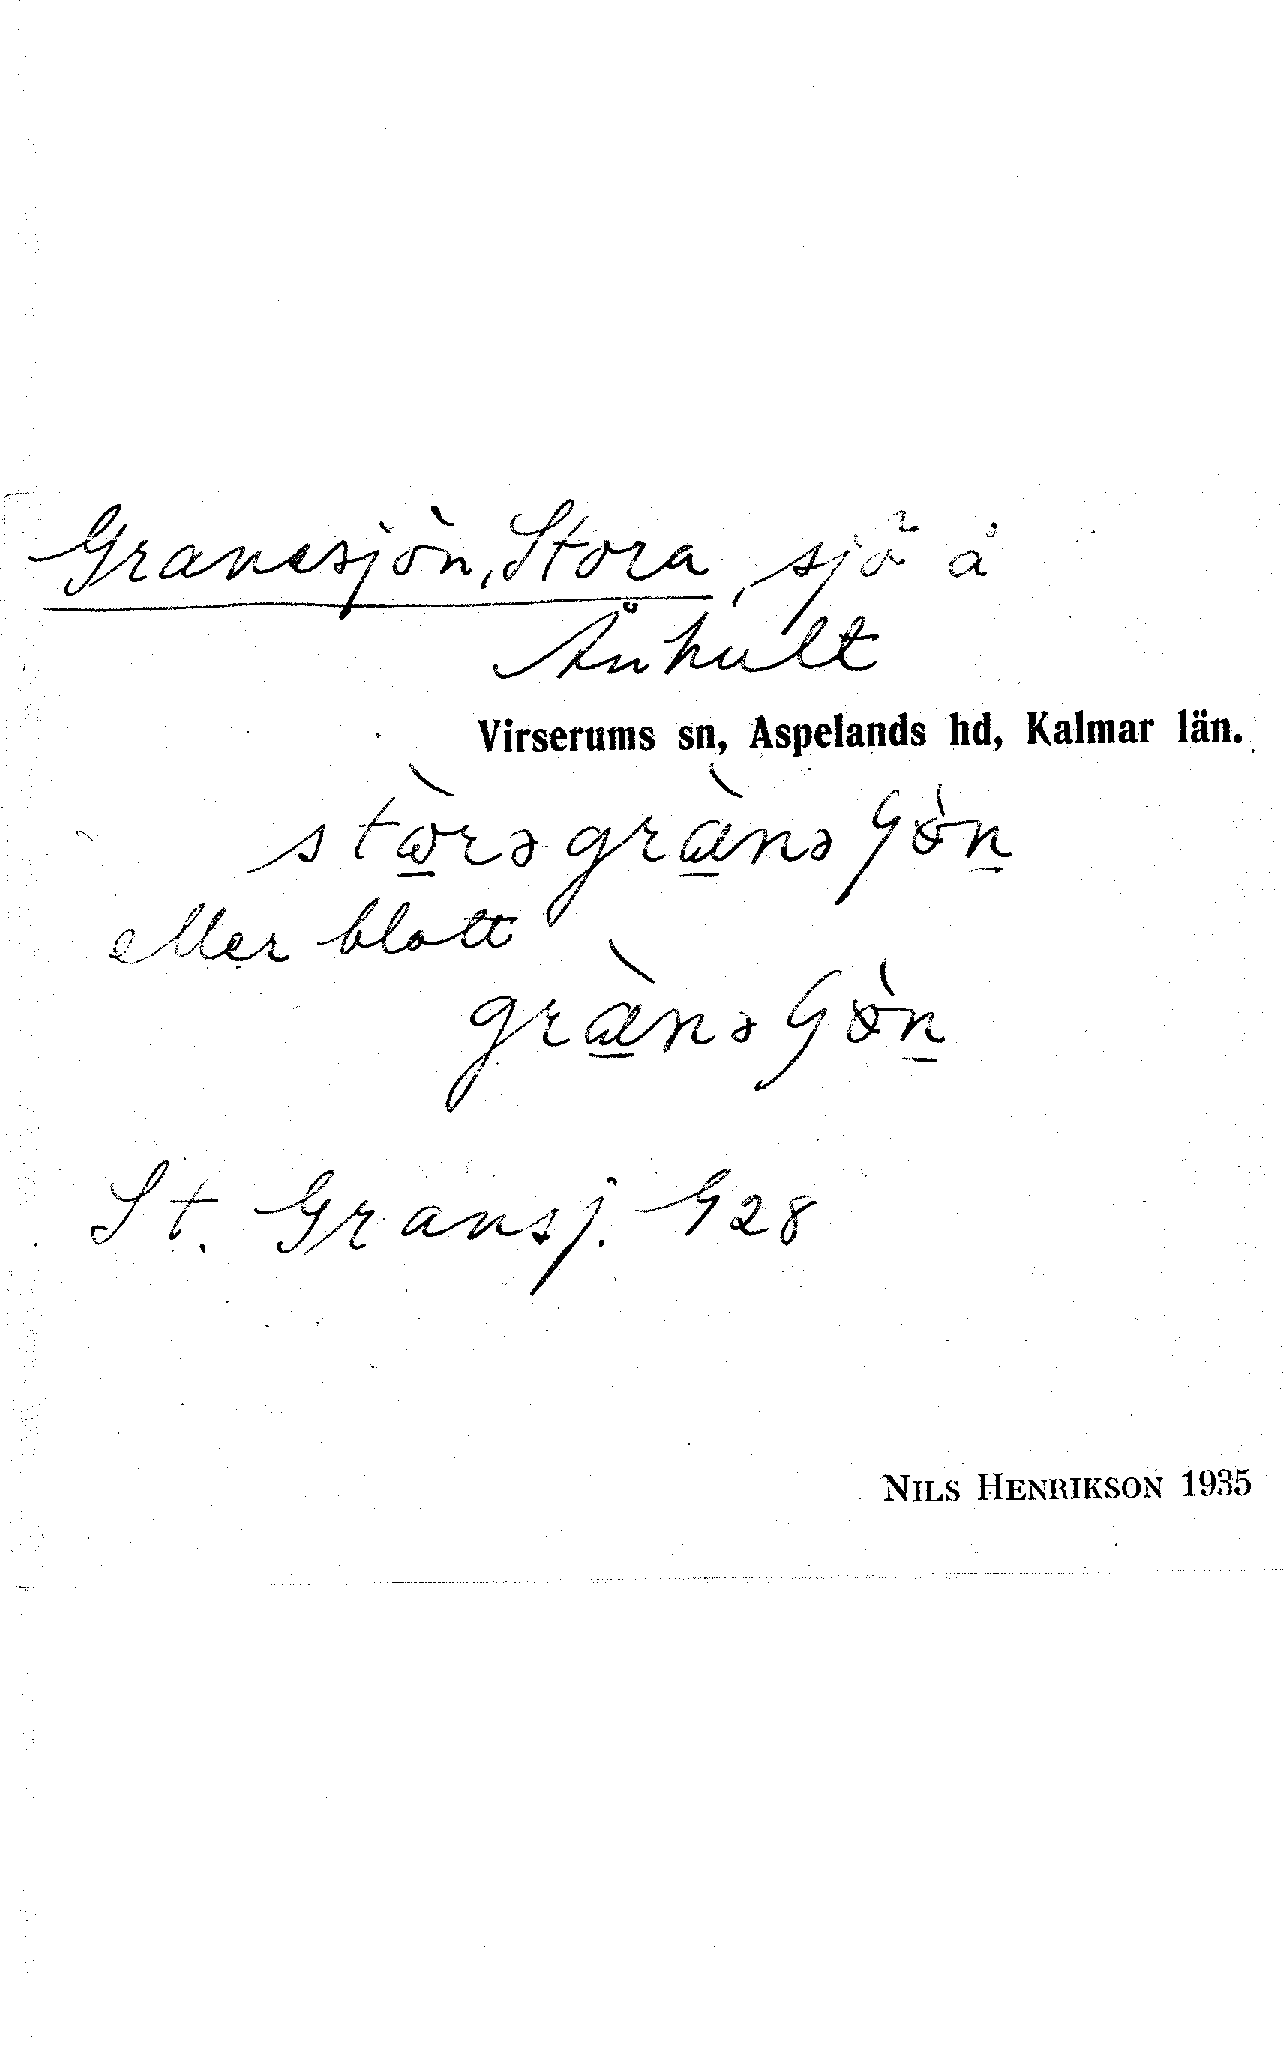 Granesjön, Stora, sjö å
Ånhult
Virserums sn, Aspelands hd, Kalmar län.
eller blott
St. Gransj. G28
NILS HENRIKSON 1935